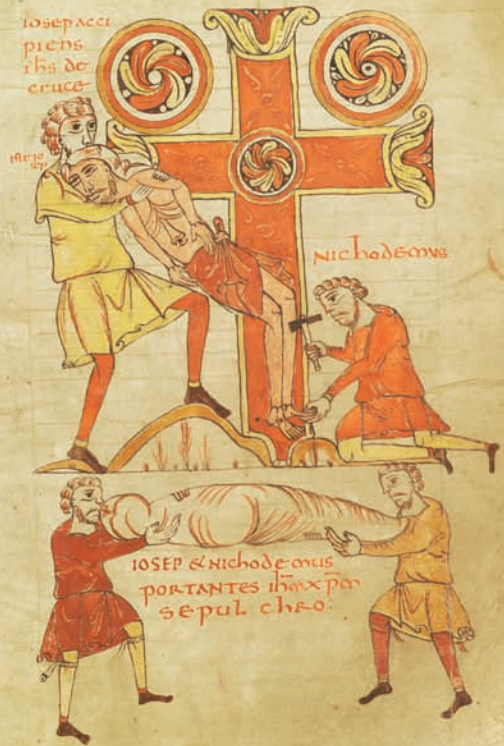 IOSEP ACCI
PIENS
IHS DE
CRUCE
NICHODEMUS
IOSEP & NICHODEMUS
PORTANTES IH̅M X̅P̅M
SEPULCHRO: